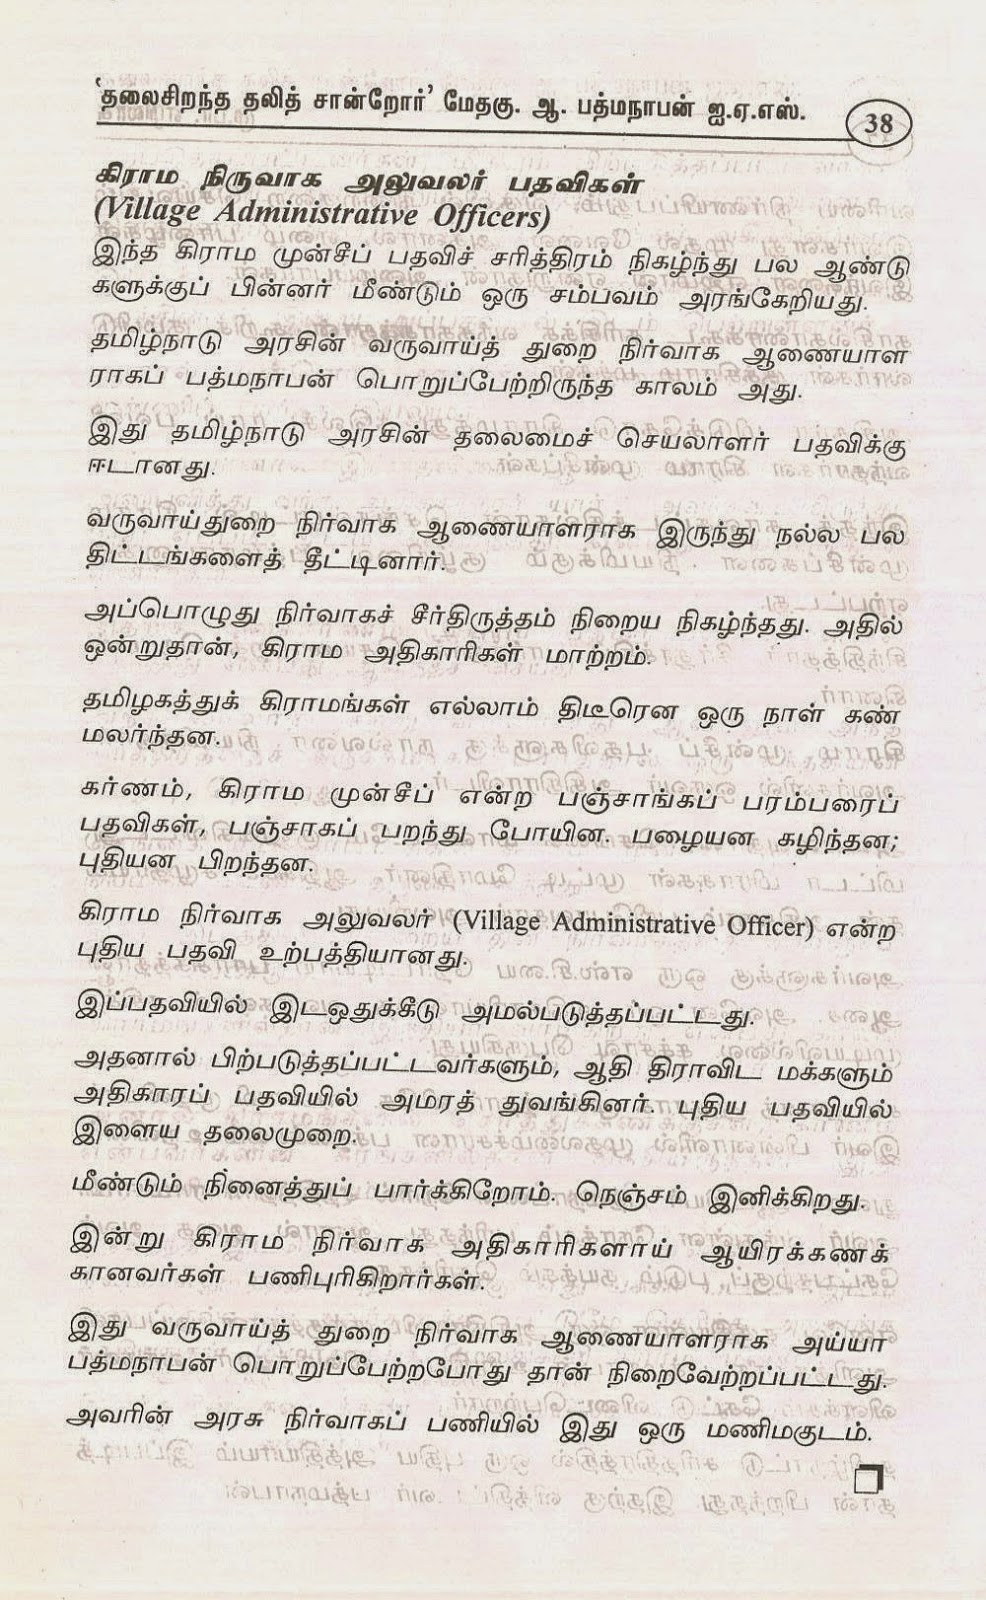 'தலைசிறந்த தலித் சான்றோர்' மேதகு. ஆ. பத்மநாபன் ஐ.ஏ.எஸ்.
38
கிராம நிருவாக அலுவலர் பதவிகள்
(Village Administrative Officers)
இந்த கிராம முன்சீப் பதவிச் சரித்திரம் நிகழ்ந்து பல ஆண்டு
களுக்குப் பின்னர் மீண்டும் ஒரு சம்பவம் அரங்கேறியது.
தமிழ்நாடு அரசின் வருவாய்த் துறை நிர்வாக ஆணையாள
ராகப் பத்மநாபன் பொறுப்பேற்றிருந்த காலம் அது.
இது தமிழ்நாடு அரசின் தலைமைச் செயலாளர் பதவிக்கு
ஈடானது.
வருவாய்துறை நிர்வாக ஆணையாளராக இருந்து நல்ல பல
திட்டங்களைத் தீட்டினார்.
அப்பொழுது நிர்வாகச் சீர்திருத்தம் நிறைய நிகழ்ந்தது. அதில்
ஒன்றுதான், கிராம அதிகாரிகள் மாற்றம்.
தமிழகத்துக் கிராமங்கள் எல்லாம் திடீரென ஒரு நாள் கண்
மலர்ந்தன.
கர்ணம், கிராம முன்சீப் என்ற பஞ்சாங்கப் பரம்பரைப்
பதவிகள், பஞ்சாகப் பறந்து போயின. பழையன கழிந்தன;
புதியன பிறந்தன.
கிராம நிர்வாக அலுவலர் (Village Administrative Officer) என்ற
புதிய பதவி உற்பத்தியானது.
இப்பதவியில் இடஒதுக்கீடு அமல்படுத்தப்பட்டது.
அதனால் பிற்படுத்தப்பட்டவர்களும், ஆதி திராவிட மக்களும்
அதிகாரப் பதவியில் அமரத் துவங்கினர். புதிய பதவியில்
இளைய தலைமுறை.
மீண்டும் நினைத்துப் பார்க்கிறோம். நெஞ்சம் இனிக்கிறது.
இன்று கிராம நிர்வாக அதிகாரிகளாய் ஆயிரக்கணக்
கானவர்கள் பணிபுரிகிறார்கள்.
இது வருவாய்த் துறை நிர்வாக ஆணையாளராக அய்யா
பத்மநாபன் பொறுப்பேற்றபோது தான் நிறைவேற்றப்பட்டது.
அவரின் அரசு நிர்வாகப் பணியில் இது ஒரு மணிமகுடம்.